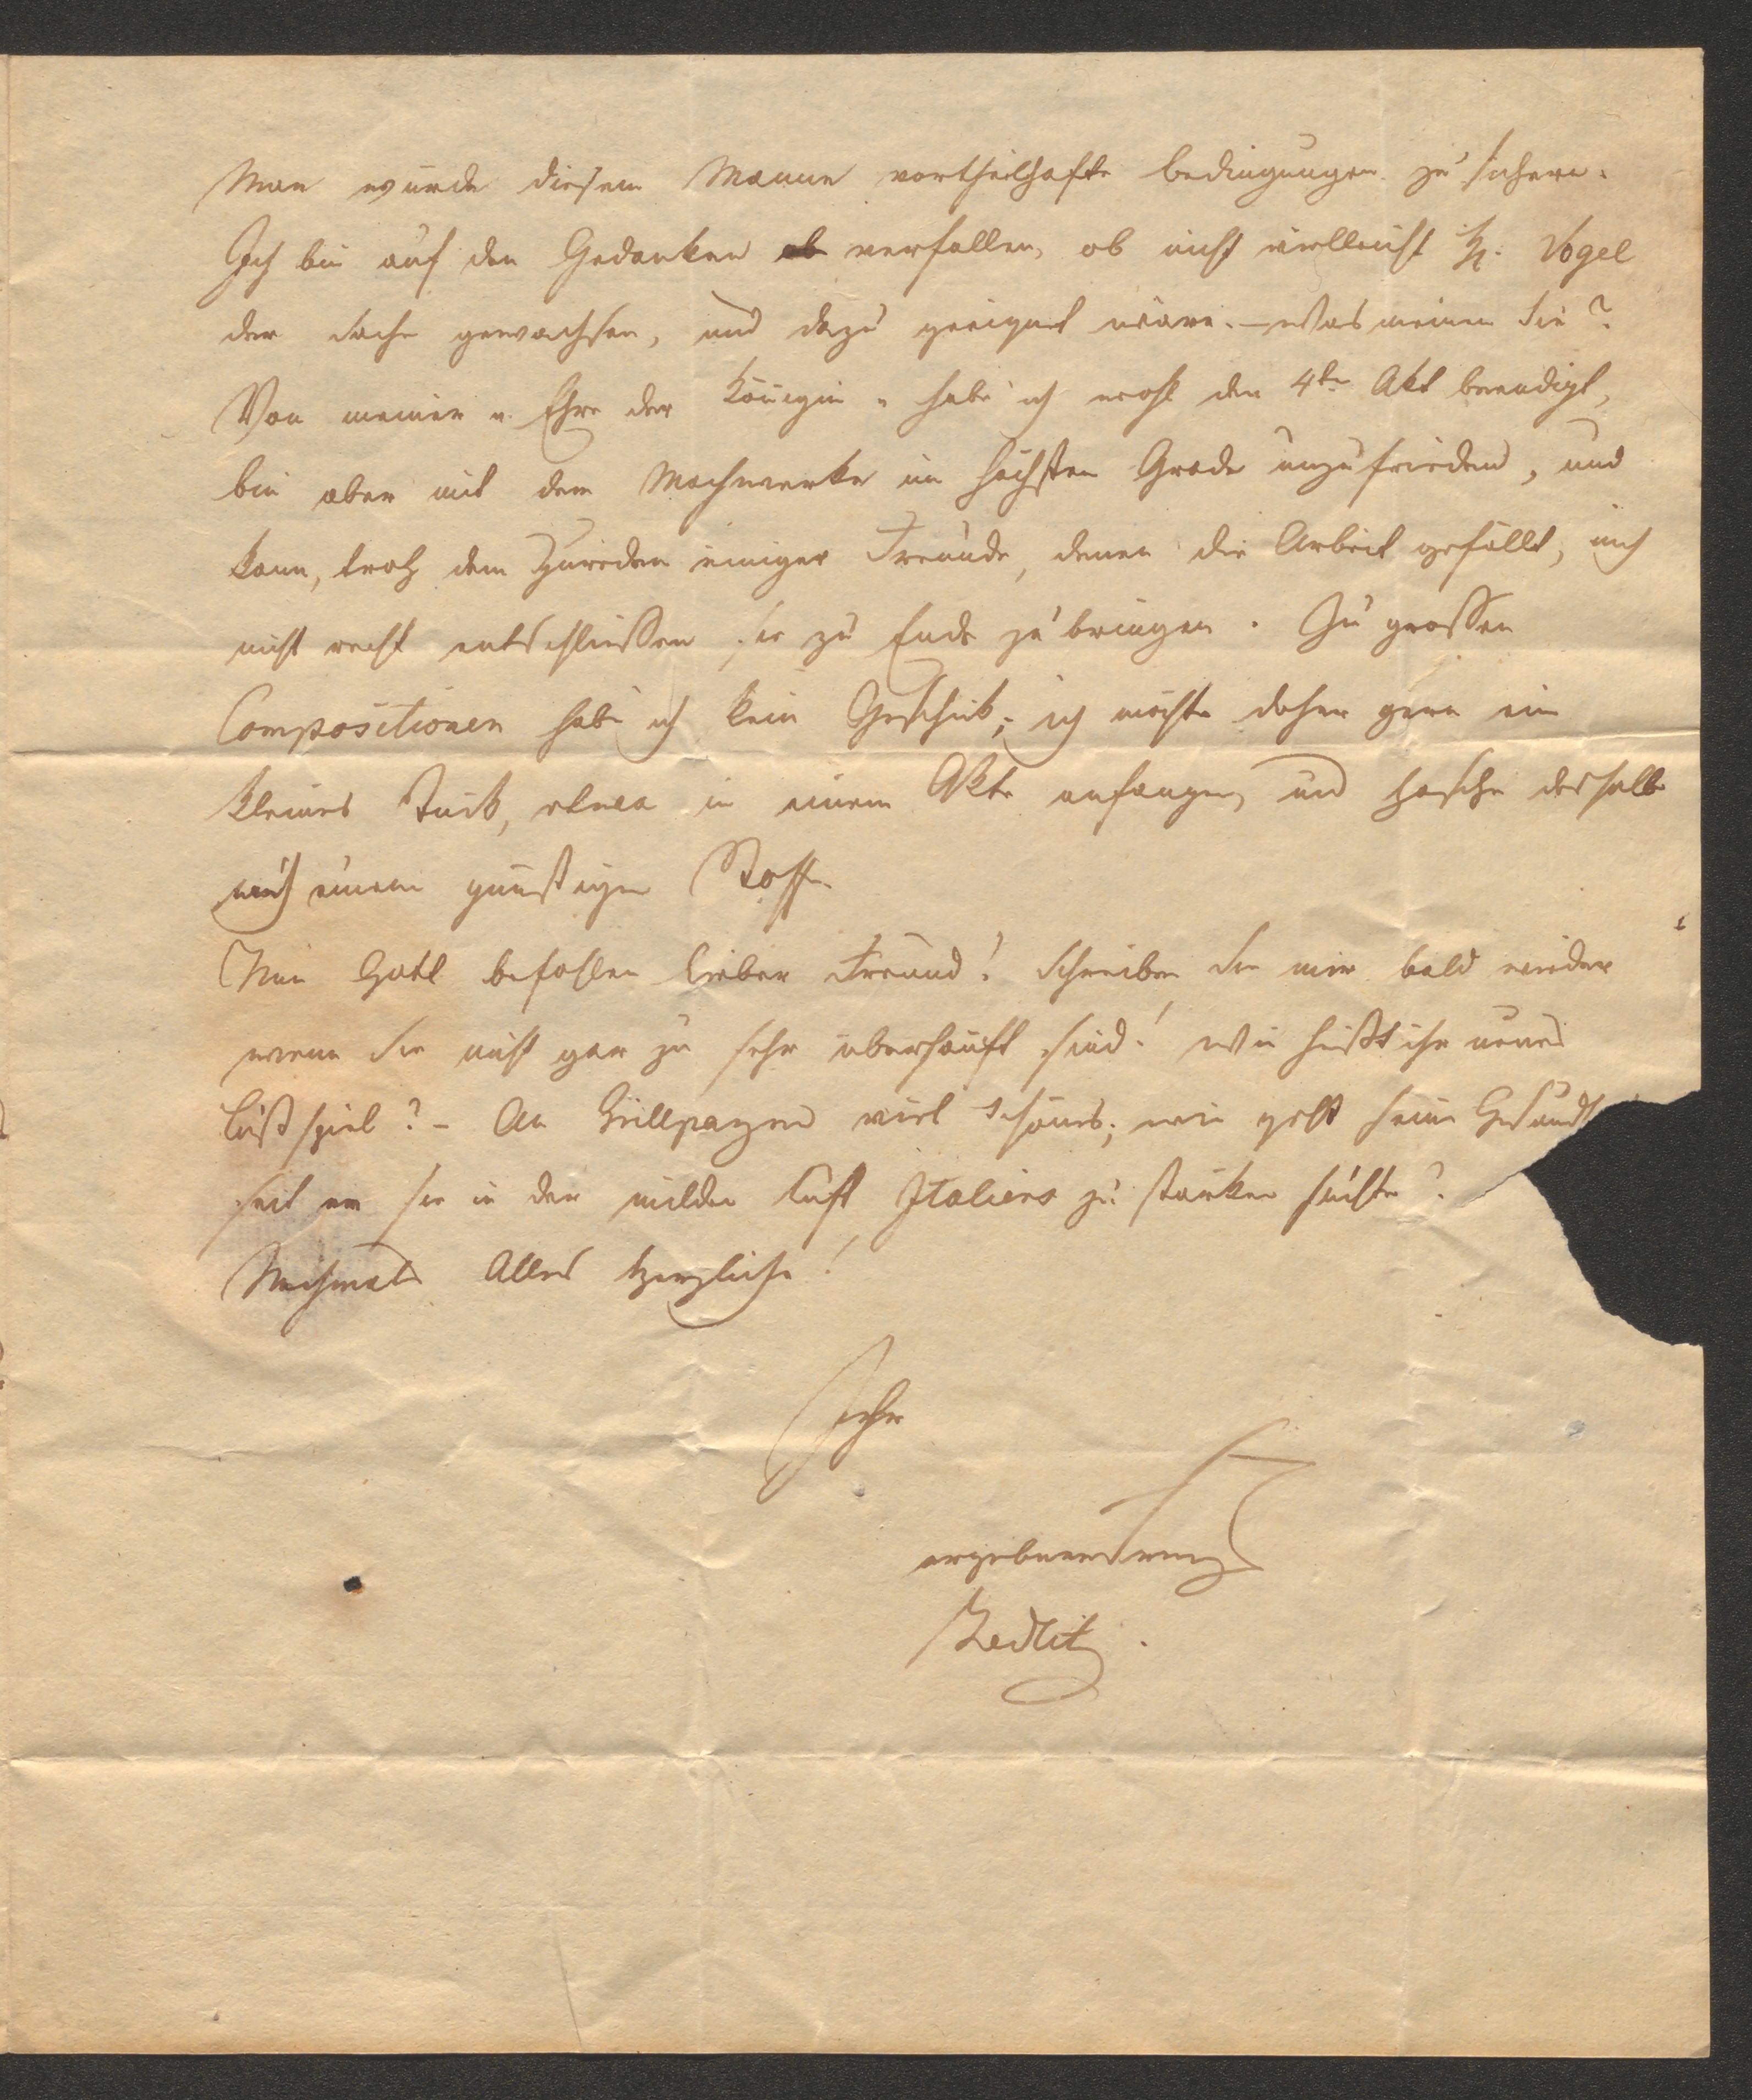 Man würde diesem Manne vortheilhafte Bedingungen zu sichern.
Ich bin auf den Gedanken verfallen, ob nicht vielleicht H. Vogel
der Sache gewachsen, und dazu geeignet wäre. – Was meinen Sie?
Von meiner „Ehre der Königin" habe ich wohl den 4ten Akt beendigt,
bin aber mit dem Machwerke im höchsten Grade unzufrieden, und
kann, trotz dem Zureden einiger Freunde, denen die Arbeit gefällt, mich
nicht recht entschließen sie zu Ende zu bringen. Zu grossen
Compositionen habe ich kein Geschick; ich möchte daher gern ein
kleines Stück, etwa in einem Akte anfangen, und hasche deshalb
nach einem günstigen Stoffe.
Nun Gott befohlen lieber Freund! Schreiben Sie mir bald wieder
wenn Sie nicht gar zu sehr überhäuft sind! Wie heißt ihr neues
Lustspiel? – An Grillparzer viel Schönes; wie geht seine Gesundh
seit er sie in der milden Luft Italiens zu stärken suchte?
Nochmals Alles Herzliche!
Ihr
ergebenster
Zedlitz.